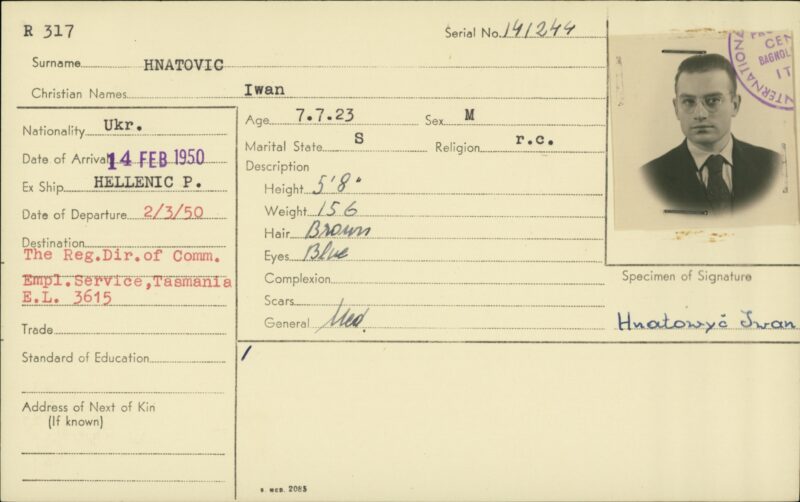 R 317
Serial No. 141244
Surname HNATOVIC
Christian Names Iwan
Nationality Ukr.
Date of Arrival 14 FEB 1950
Ex Ship HELLENIC P.
Date of Departure 2/3/50
Destination
The Reg.Dir.of Comm.
Empl.Service,Tasmania
E.L. 3615
Trade
Standard of Education
Address of Next of Kin
(If known)
Age 7.7.23 Sex M
Marital State S Religion r.c.
Description
Height 5'8"
Weight 156
Hair Brown
Eyes Blue
Complexion
Scars
General Med.
CEN
BAGNOL
IT
Specimen of Signature
Hnatowyč Iwan